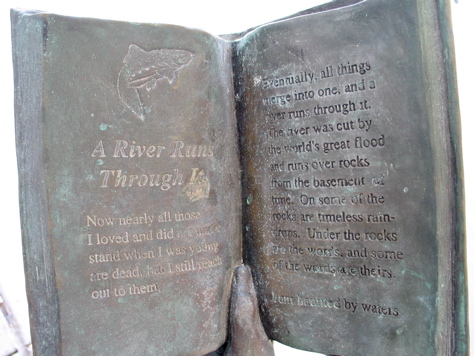 A River Runs
Through It
Now nearly all those
I loved and did not under-
stand when I was young
are dead, but I still reach
out to them.
Eventually, all things
merge into one, and a
river runs through it.
The river was cut by
the world's great flood
and runs over rocks
from the basement of
time. On some of the
rocks are timeless rain-
drops. Under the rocks
are the words, and some
of the words are theirs.
I am haunted by waters